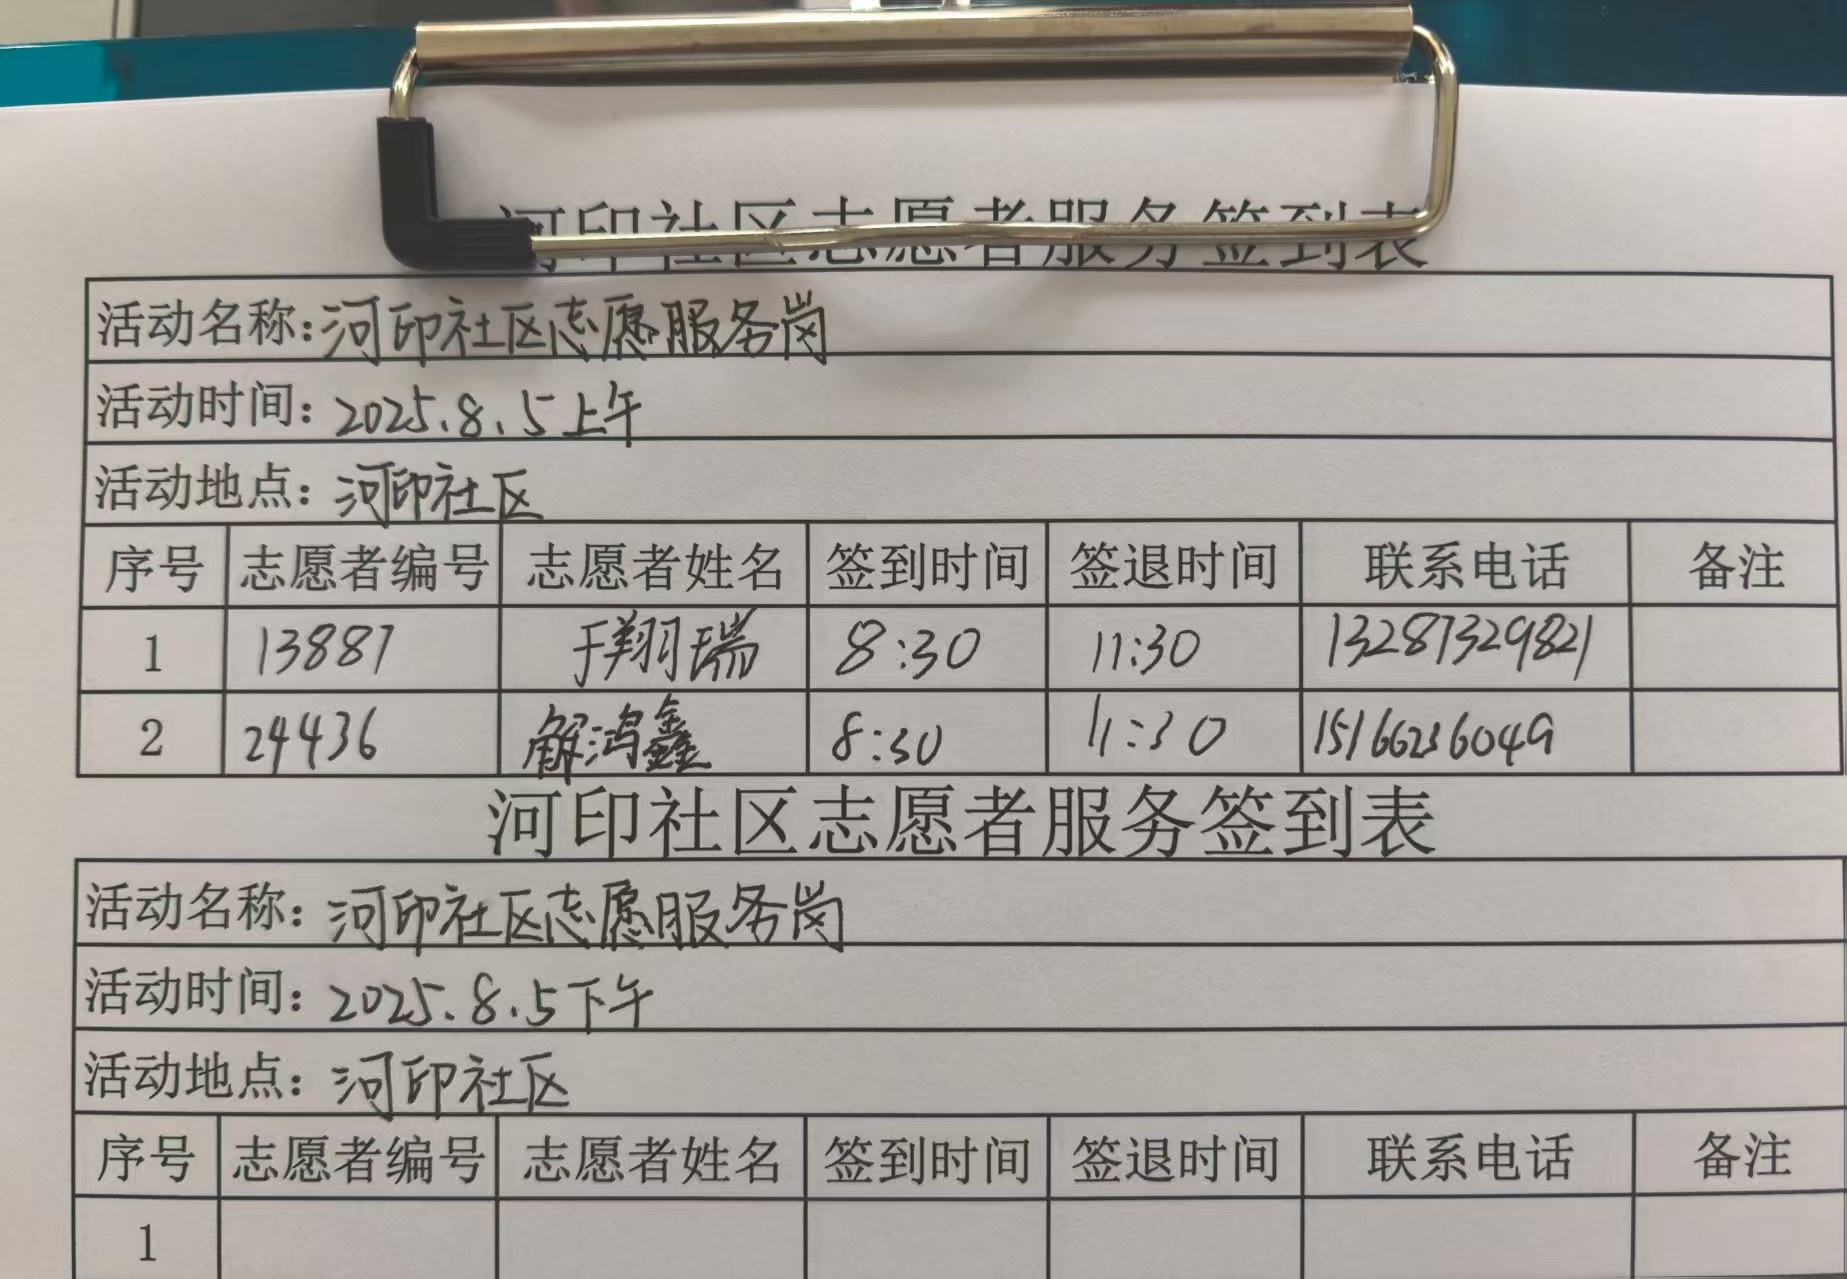 河印社区志愿者服务签到表
活动名称:河印社区志愿服务岗
活动时间:2025.8.5上午
活动地点:河印社区
序号 志愿者编号 志愿者姓名 签到时间 签退时间 联系电话 备注
1 13887 于翔瑞 8:30 11:30 13287329821
2 24436 解鸿鑫 8:30 11:30 15166236049
河印社区志愿者服务签到表
活动名称:河印社区志愿服务岗
活动时间:2025.8.5下午
活动地点:河印社区
序号 志愿者编号 志愿者姓名 签到时间 签退时间 联系电话 备注
1